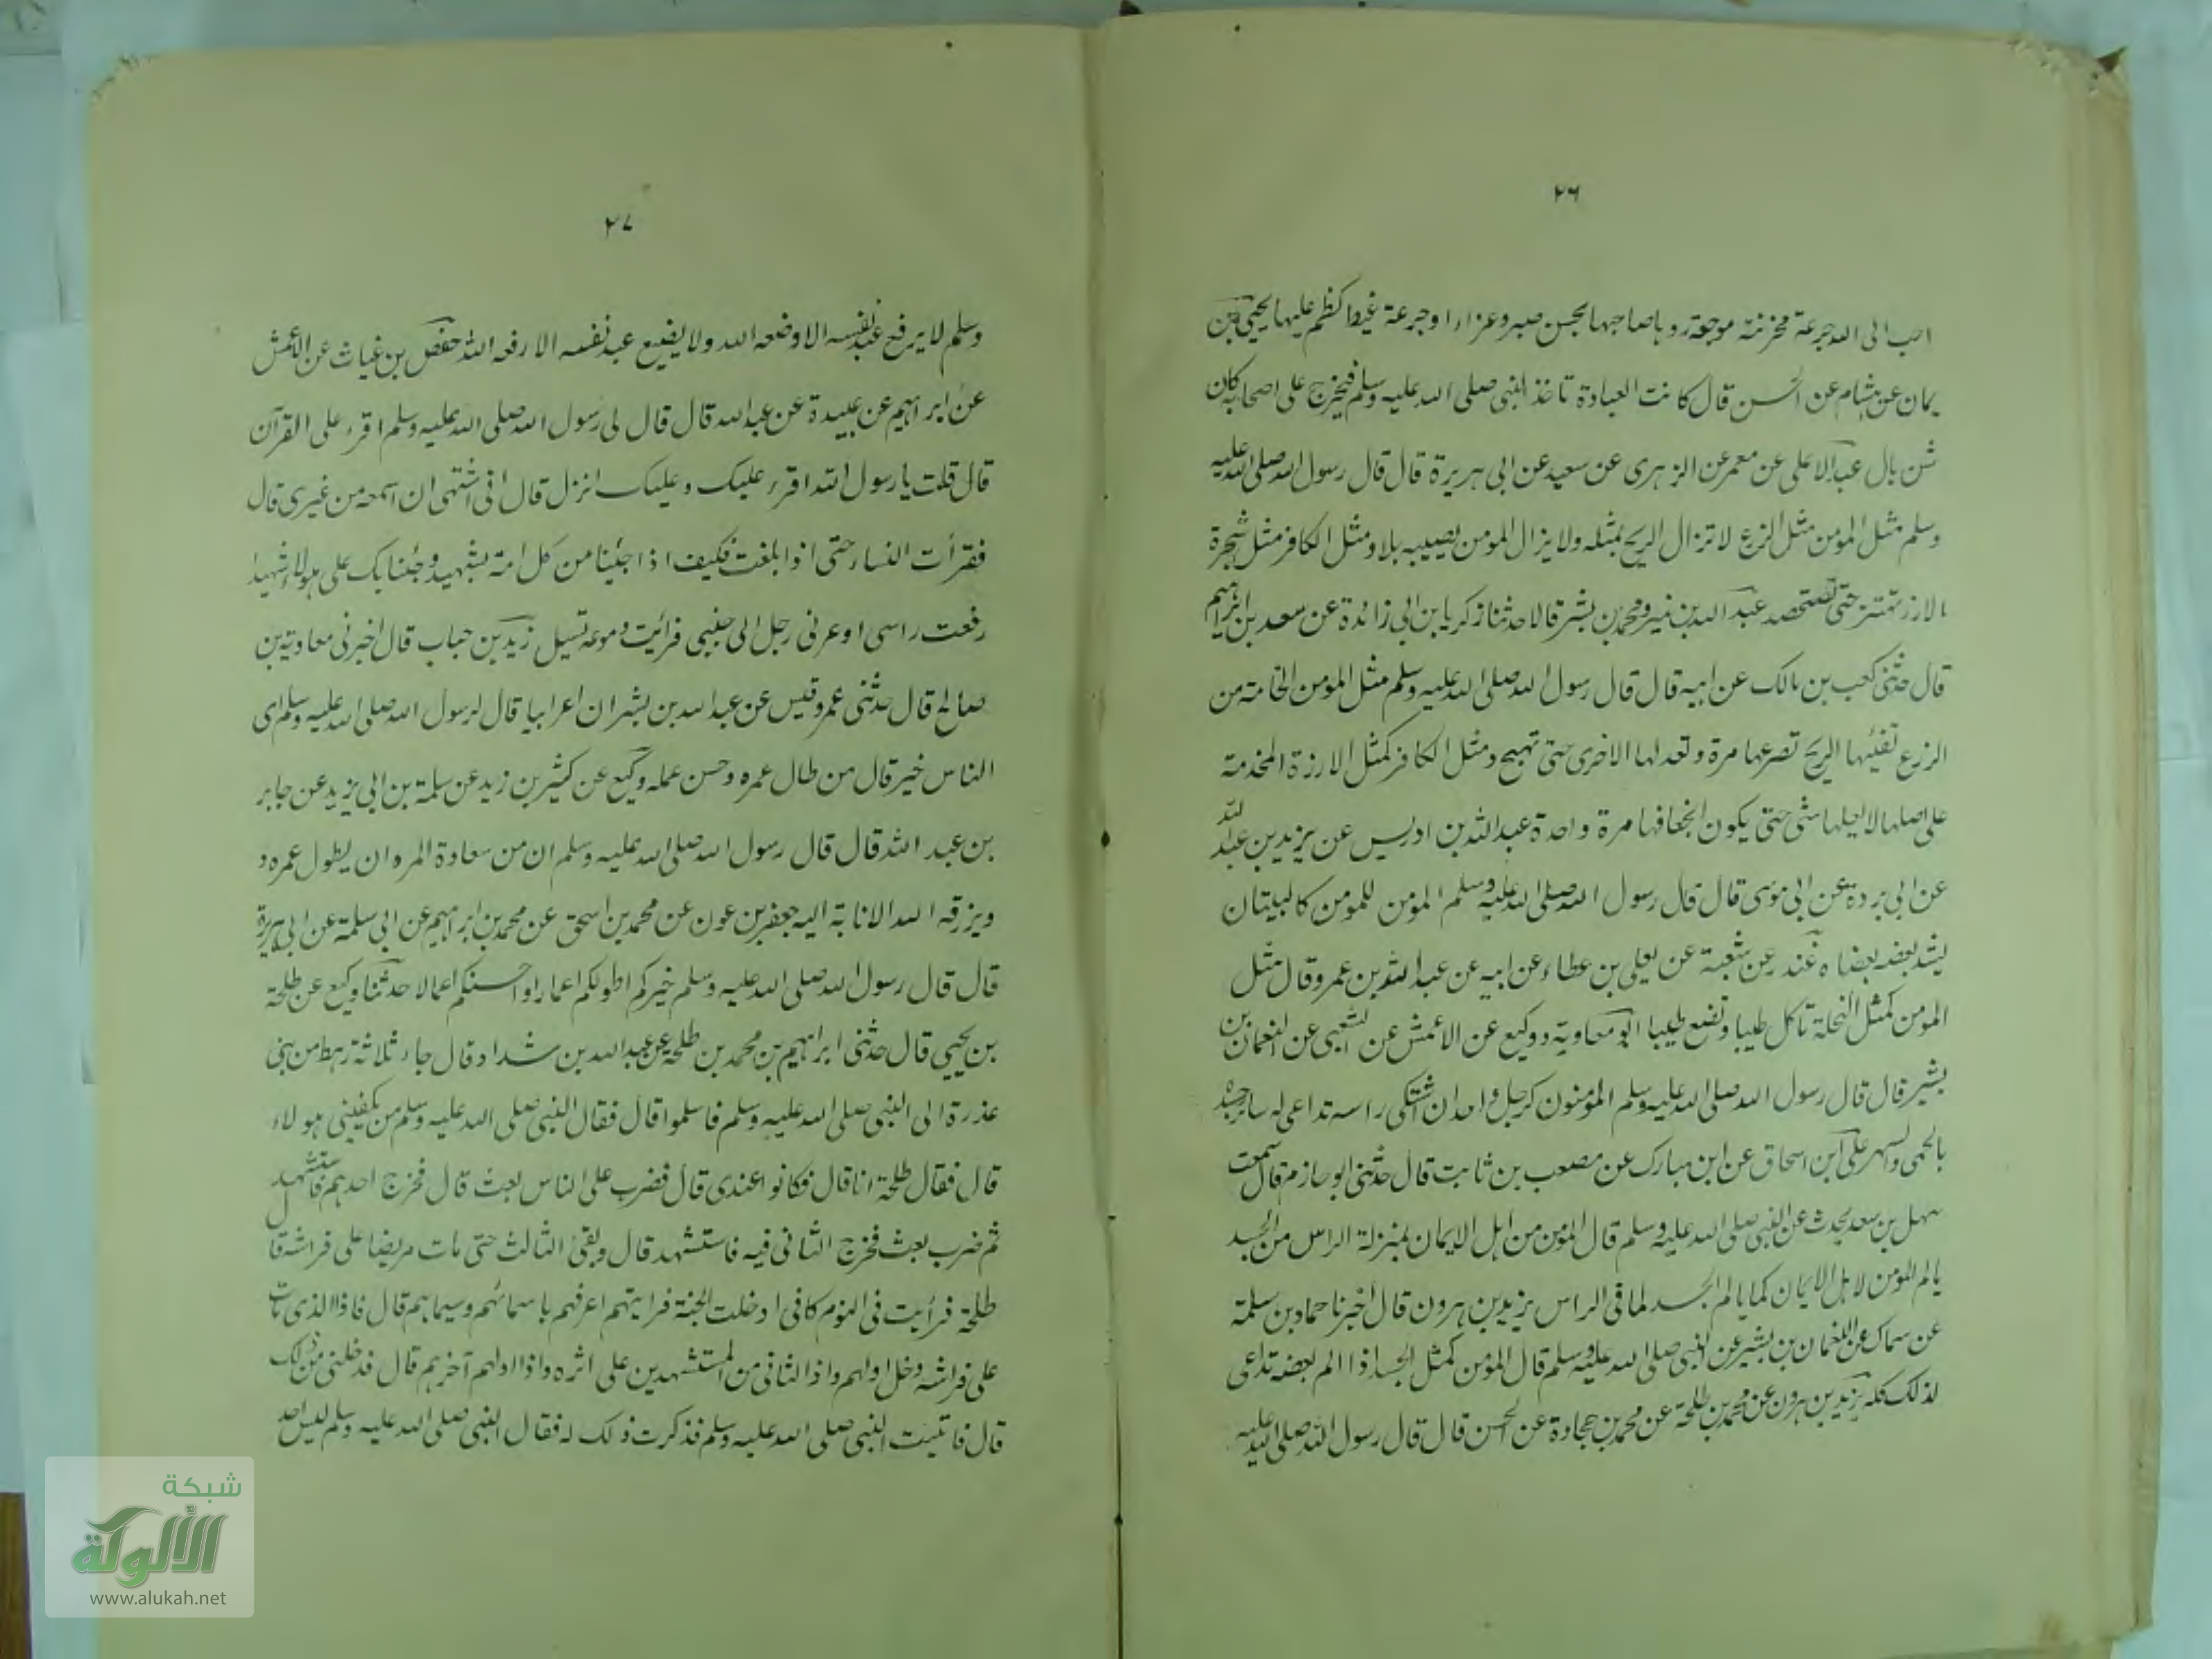 ٢٦
احب الى الله جرعة مخزنة موجعة رو ہا صاحبها بحسن صبر وعزاء او جرعة غيظ كظم عليها يحيى بن
يمان عن ہشام عن الحسن قال كانت العبادة تاخذ النبى صلى الله عليه وسلم فيخرج على اصحابه كان
شن بال عبد الاعلى عن معمر عن الزہرى عن سعيد عن ابى ہريرة قال قال رسول الله صلى الله عليه
وسلم مثل المؤمن مثل الزرع لا تزال الريح تمثله ولا يزال المؤمن يصيبه بلاء ومثل الكافر مثل شجرة
الارز تهتز حتى تستحصد عبد الله بن نمير ومحمد بن بشر قالا حدثنا زكريا بن ابى زائدة عن سعد بن ابراہيم
قال حدثنى كعب بن مالك عن ابيه قال قال رسول الله صلى الله عليه وسلم مثل المؤمن الخامة من
الزرع تفيئها الريح تصرعها مرة وتعدلها الاخرى حتى تهيج ومثل الكافر كمثل الارزة المخدمة
على اصلها لا يعلها شئ حتى يكون انجعافها مرة واحدة عبد الله بن ادريس عن يزيد بن عبد الله
عن ابى بردة عن ابى موسى قال قال رسول الله صلى الله عليه وسلم المؤمن للمؤمن كالبيتان
يشد بعضه بعضا ہ غندر عن شعبة عن يعلى بن عطاء عن ابيه عن عبد الله بن عمرو قال مثل
المؤمن كمثل النحلة تاكل طيبا وتضع طيبا ابو معاوية ووكيع عن الاعمش عن الشعبى عن النعمان بن
بشير قال قال رسول الله صلى الله عليه وسلم المؤمنون كرجل واحد ان اشتكى راسه تداعى له سائر جسده
بالحمى والسهر على ابن اسحاق عن ابن مبارك عن مصعب بن ثابت قال حدثنى ابو حازم قال سمعت
سهل بن سعد يحدث عن النبى صلى الله عليه وسلم قال المؤمن من اہل الايمان بمنزلة الراس من الجسد
يالم المؤمن لاہل الايمان كما يالم الجسد لما فى الراس يزيد بن ہرون قال اخبرنا حماد بن سلمة
عن سماك عن النعمان بن بشير عن النبى صلى الله عليه وسلم قال المؤمن كمثل الجسد اذا الم بعضه تداعى
لذلك كله يزيد بن ہرون عن محمد بن طلحة عن محمد بن جحادة عن الحسن قال قال رسول الله صلى الله عليه
٢٧
وسلم لا يرفع عبد نفسه الا وضعه الله ولا يضع عبد نفسه الا رفعه الله حفص بن غياث عن الاعمش
عن ابراہيم عن عبيدة عن عبد الله قال قال لى رسول الله صلى الله عليه وسلم اقرء على القرآن
قال قلت يا رسول الله اقرء عليك وعليك انزل قال انى اشتهى ان اسمعه من غيرى قال
فقرأت النساء حتى اذا بلغت فكيف اذا جئنا من كل امة بشهيد وجئنا بك على ہولاء شهيدا
رفعت راسى او غمزنى رجل الى جنبى فرائيت دموعه تسيل زيد بن حباب قال اخبرنى معاوية بن
صالح قال حدثنى عمرو قيس عن عبد الله بن بشر ان اعرابيا قال لرسول الله صلى الله عليه وسلم اى
الناس خير قال من طال عمره وحسن عمله وكيع عن كثير بن زيد عن سلمة بن ابى يزيد عن جابر
بن عبد الله قال قال رسول الله صلى الله عليه وسلم ان من سعادة المرء ان يطول عمره و
ويرزقه الله الانابة اليه جعفر بن عون عن محمد بن اسحق عن محمد بن ابراہيم عن ابى سلمة عن ابى ہريرة
قال قال رسول الله صلى الله عليه وسلم خيركم اطولكم اعمارا واحسنكم اعمالا حدثنا وكيع عن طلحة
بن يحيى قال حدثنى ابراہيم بن محمد بن طلحة عن عبد الله بن شداد قال جاء ثلاثة رہط من بنى
عذرة الى النبى صلى الله عليه وسلم فاسلموا قال فقال النبى صلى الله عليه وسلم من يكفينى ہولاء
قال فقال طلحة انا قال فكانوا عندى قال فضرب على الناس بعث قال فخرج احدہم فاستشهد
ثم ضرب بعث فخرج الثانى فيه فاستشهد قال وبقى الثالث حتى مات مريضا على فراشه قال
طلحة فرأيت فى النوم كانى ادخلت الجنة فرايتهم اعرفهم باسمائهم وسيماہم قال فاذا الذى مات
على فراشه دخل اولهم واذا الثانى من المستشهدين على اثره واذا اولهم آخرہم قال فدخلنى من ذلك
قال فاتيت النبى صلى الله عليه وسلم فذكرت ذلك له فقال النبى صلى الله عليه وسلم ليس احد
شبكة
الألوكة
www.alukah.net